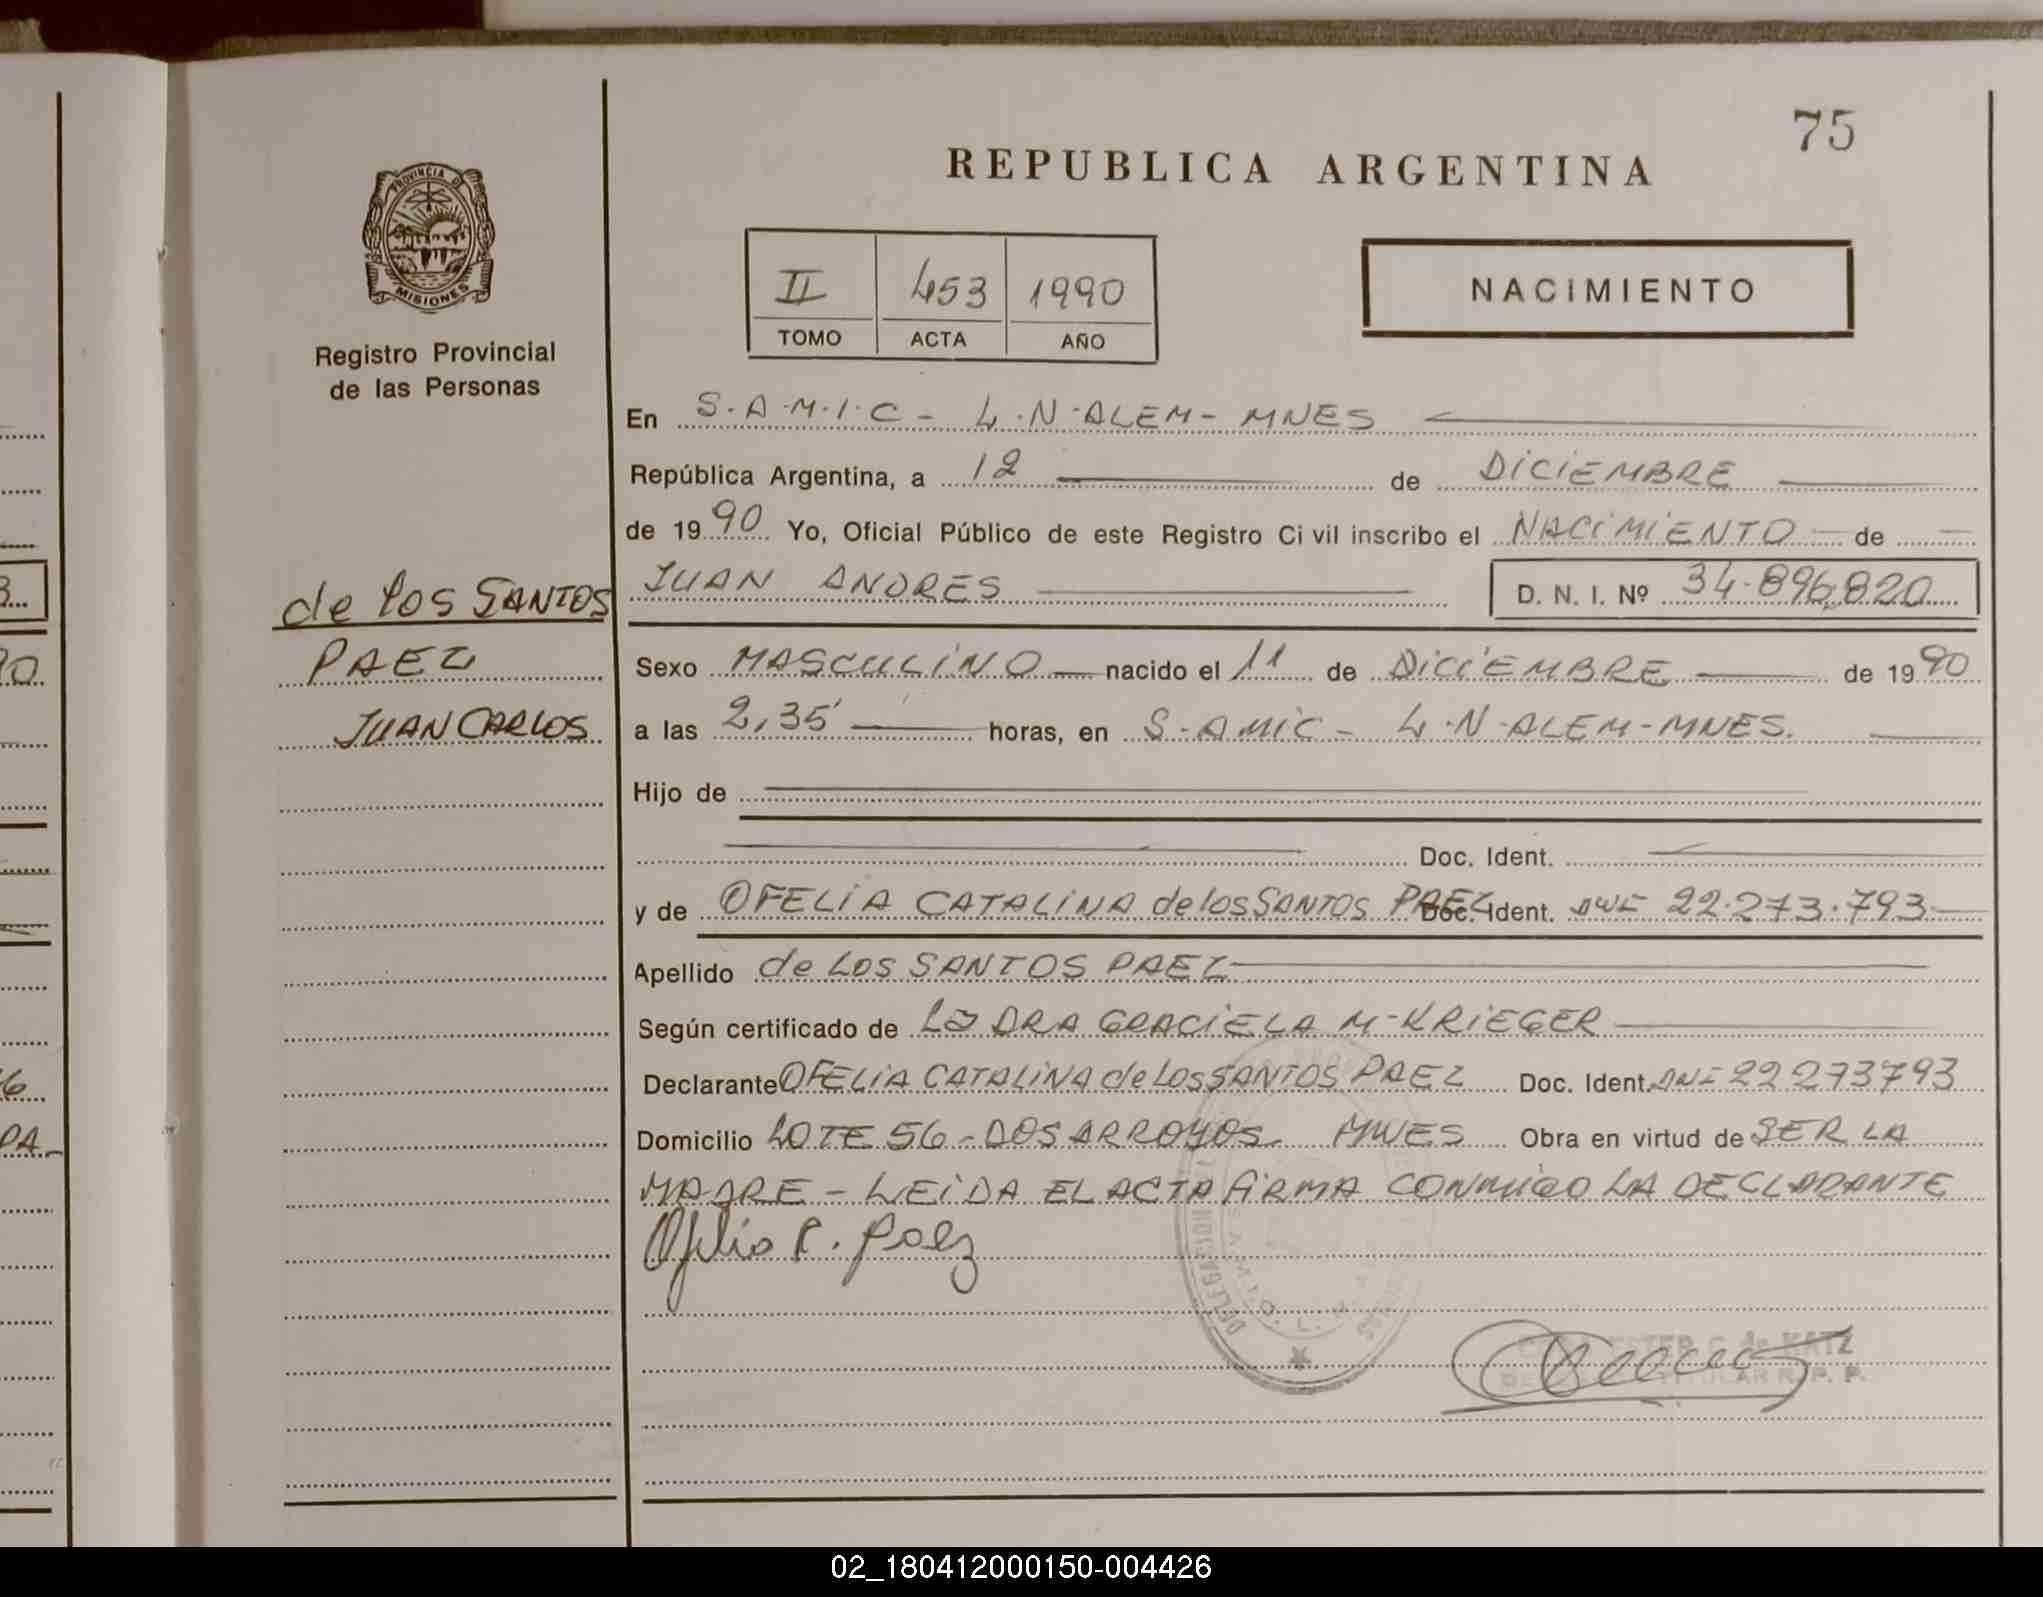 75
REPUBLICA ARGENTINA
PROVINCIA DE
MISIONES
Registro Provincial
de las Personas
II 453 1990
TOMO ACTA AÑO
NACIMIENTO
En S.A.M.I.C - L.N.ALEM - MNES
República Argentina, a 12 de DICIEMBRE
de 1990 Yo, Oficial Público de este Registro Ci vil inscribo el NACIMIENTO de
JUAN ANDRES D. N. I. Nº 34.896,820
de los SANTOS
PAEZ
JUAN CARLOS
Sexo MASCULINO nacido el 11 de DICIEMBRE de 1990
a las 2,35' horas, en S.AMIC - L.N.ALEM-MNES.
Hijo de
Doc. Ident.
y de OFELIA CATALINA de los SANTOS PAEZ Doc. Ident. DNI 22.273.793
Apellido de LOS SANTOS PAEZ
Según certificado de LA DRA GRACIELA M-KRIEGER
Declarante OFELIA CATALINA de LOS SANTOS PAEZ Doc. Ident. DNI 22 273793
Domicilio LOTE 56 - DOS ARROYOS MNES Obra en virtud de SER LA
MADRE - LEIDA EL ACTA FIRMA CONMIGO LA DECLARANTE
Ofelia C. Paez
ESTER C. de KATZ
TITULAR R. P. P.
02_180412000150-004426